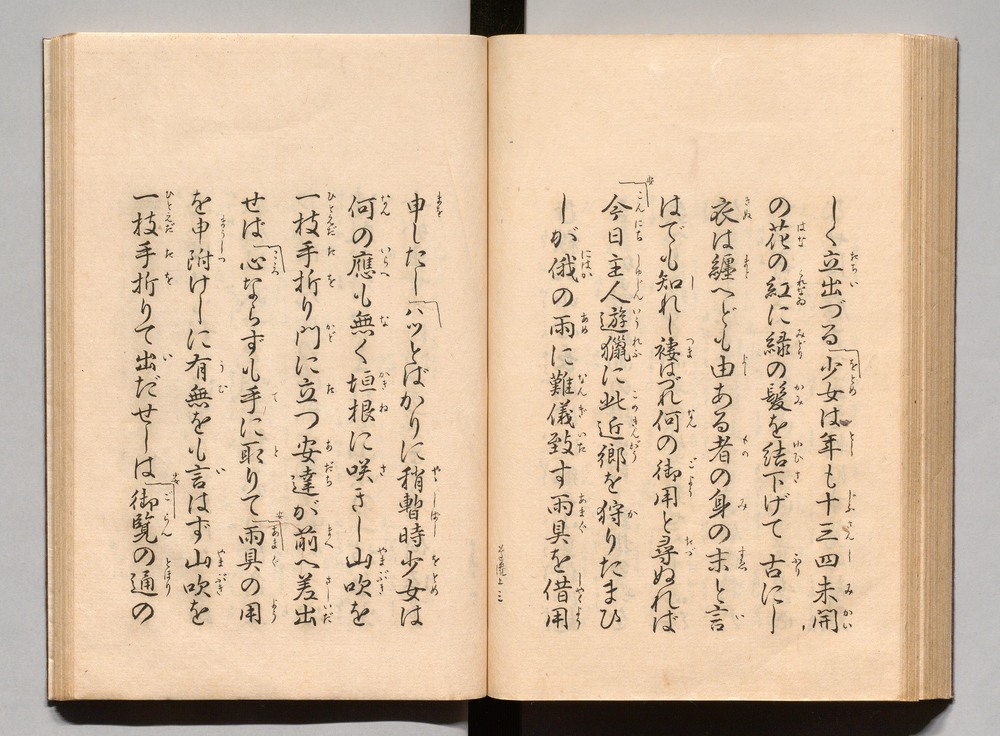 しく立出づる少女は年も十三四未開
の花の紅に緑の髪を結下げて古にし
衣は纏へども由ある者の身の末と言
はでも知れし褄はづれ何の御用と尋ぬれば
今日主人遊獵に此近郷を狩りたまひ
しが俄の雨に難儀致す雨具を借用
申したしハツとばかりに稍暫時少女は
何の應も無く垣根に咲きし山吹を
一枝手折り門に立つ安達が前へ差出
せば心ならずも手に取りて雨具の用
を申附けしに有無をも言はず山吹を
一枝手折りて出だせしは御覧の通の